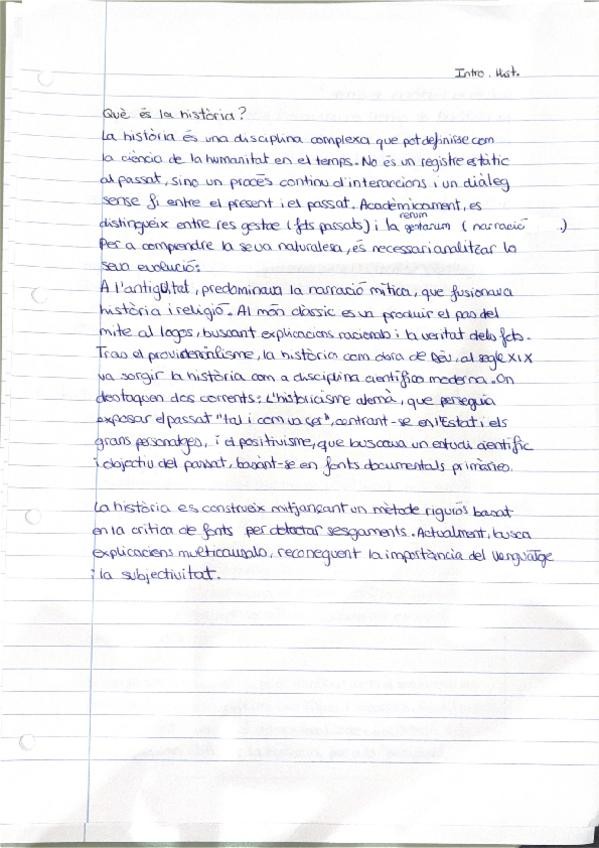 Intro. Hist.
Què és la història?
La història és una disciplina complexa que pot definirse com
la ciència de la humanitat en el temps. No és un registre estàtic
al passat, sino un procés continu d'interaccions i un diàleg
sense fi entre el present i el passat. Acadèmicament, es
distingueix entre res gestae (fets passats) i la rerum gestarum (narració .)
Per a comprendre la seva naturalesa, és necessari analitzar la
seva evolució:
A l'antigüitat, predominava la narració mítica, que fusionava
història i religió. Al món clàssic es va produir el pas del
mite al logos, buscant explicacions racionals i la veritat dels fets.
Tras el providencialisme, la història com obra de Déu, al segle XIX
va sorgir la història com a disciplina científica moderna. On
destaquen dos corrents: L'historicisme alemà, que perseguia
exposar el passat "tal i com va ser", centrant-se en l'Estat i els
grans personatges, i el positivisme, que buscava un estudi científic
i objectiu del passat, basant-se en fonts documentals primàries.
La història es construeix mitjançant un mètode rigurós basat
en la crítica de fonts per detectar sesgaments. Actualment, busca
explicacions multicausals, reconeguent la importància del llenguatge
i la subjectivitat.